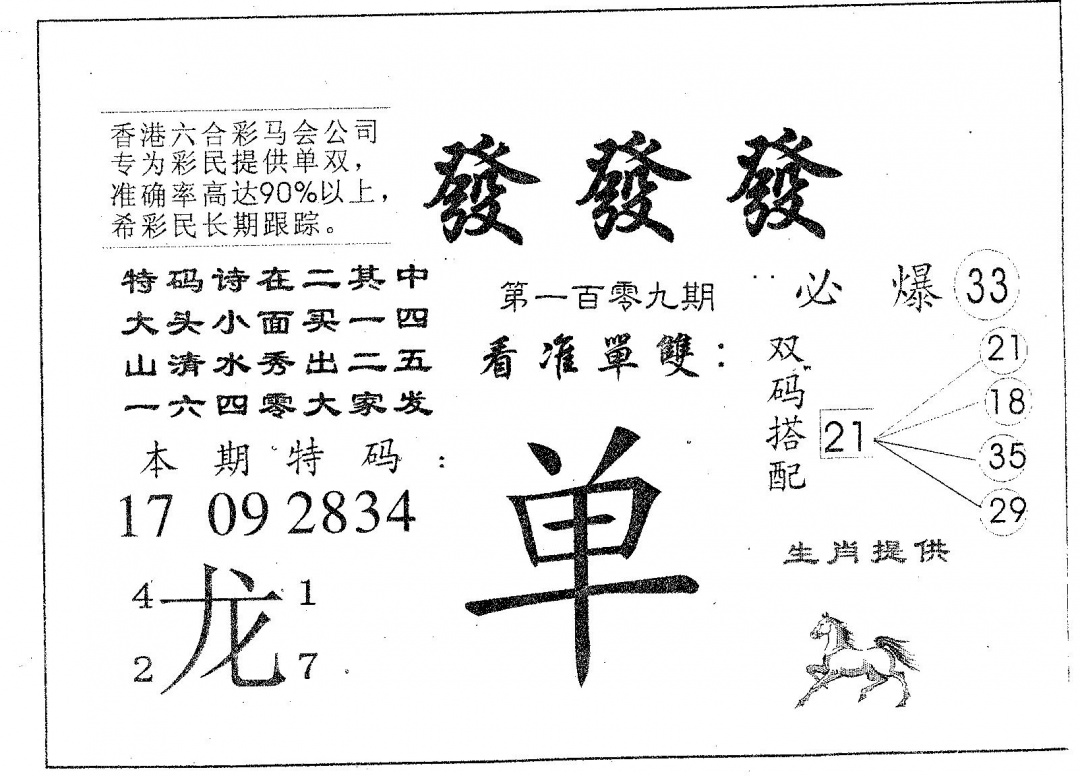 香港六合彩马会公司
专为彩民提供单双，
准确率高达90%以上，
希彩民长期跟踪。
發發發
特码诗在二其中
大头小面买一四
山清水秀出二五
一六四零大家发
本期特码：
17 09 2834
4 龙 1
2 7
第一百零九期
看准單雙：
单
必爆 33
双码搭配
21
21
18
35
29
生肖提供